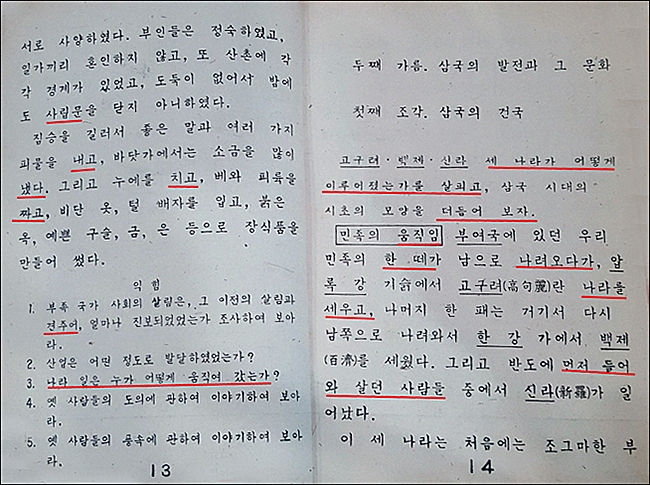 서로 사양하였다. 부인들은 정숙하였고,
일가끼리 혼인하지 않고, 또 산촌에 각
각 경계가 있었고, 도둑이 없어서 밤에
도 사립문을 닫지 아니하였다.
짐승을 길러서 좋은 말과 여러 가지
피물을 내고, 바닷가에서는 소금을 많이
냈다. 그리고 누에를 치고, 베와 피륙을
짜고, 비단 옷, 털 배자를 입고, 붉은
옥, 예쁜 구슬, 금, 은 등으로 장식품을
만들어 썼다.
익힘
1. 부족 국가 사회의 살림은, 그 이전의 살림과
견주어, 얼마나 진보되었었는가 조사하여 보아
라.
2. 산업은 어떤 정도로 발달하였었는가?
3. 나라 일은 누가 어떻게 움직여 갔는가?
4. 옛 사람들의 도의에 관하여 이야기하여 보아
라.
5. 옛 사람들의 풍속에 관하여 이야기하여 보아
라.
13
두째 가름. 삼국의 발전과 그 문화
첫째 조각. 삼국의 건국
고구려·백제·신라 세 나라가 어떻게
이루어졌는가를 살피고, 삼국 시대의
시초의 모양을 더듬어 보자.
민족의 움직임 부여국에 있던 우리
민족의 한 떼가 남으로 나려오다가, 압
록 강 기슭에서 고구려(高句麗)란 나라를
세우고, 나머지 한 패는 거기서 다시
남쪽으로 나려와서 한 강 가에서 백제
(百濟)를 세웠다. 그리고 반도에 먼저 들어
와 살던 사람들 중에서 신라(新羅)가 일
어났다.
이 세 나라는 처음에는 조그마한 부
14